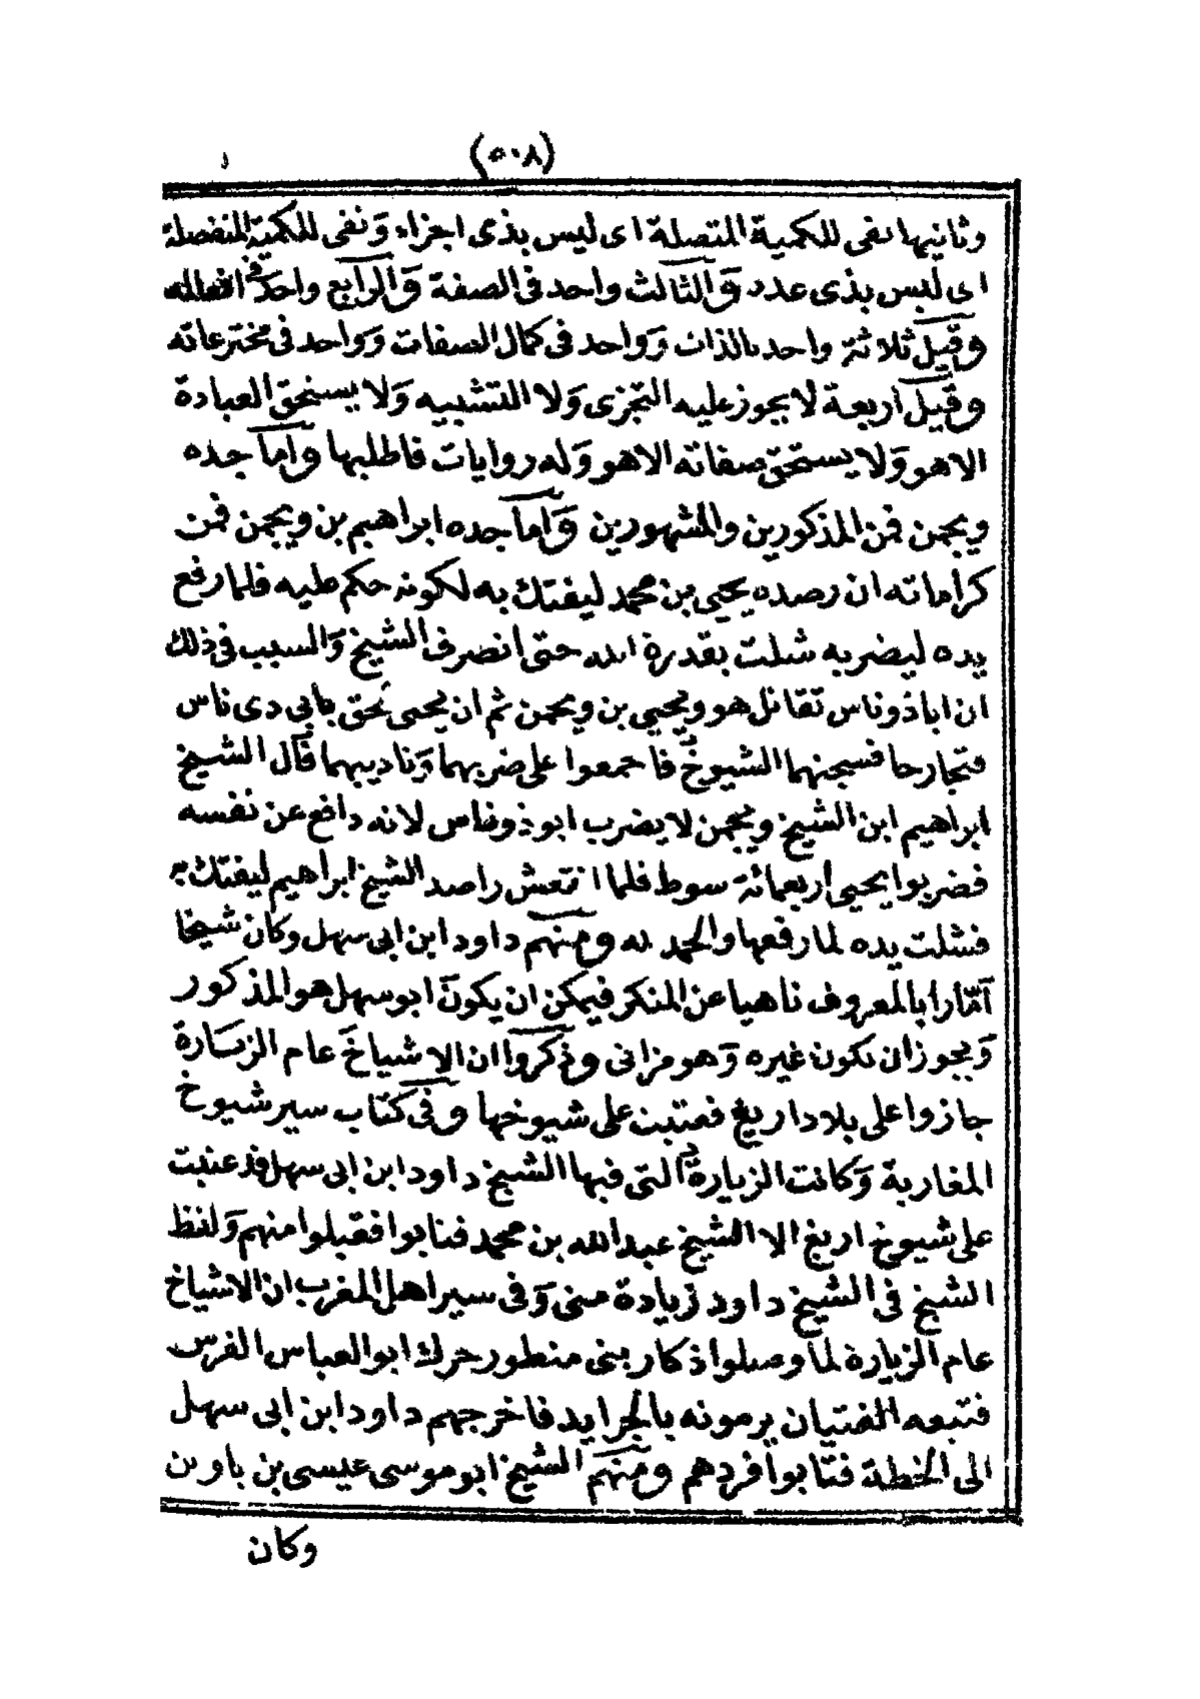 (٥٠٨)
وثانيها نفى للكمية المتصلة اى ليس بذى اجزاء ونفى للكمية المنفصلة
اى ليس بذى عدد والثالث واحد فى الصفة والرابع واحد فى افعاله
وقيل ثلاثة واحد بالذات وواحد فى كمال الصفات وواحد فى مخترعاته
وقيل اربعة لا يجوز عليه التجزى ولا التشبيه ولا يستحق العبادة
الا هو ولا يستحق صفاته الا هو وله روايات فاطلبها واما جده
ويجمن فمن المذكورين والمشهورين واما جده ابراهيم بن ويجمن فمن
كراماته ان رصده يحيى بن محمد ليفتك به لكونه حكم عليه فلما رفع
يده ليضربه شلت بقدرة الله حتى انصرف الشيخ والسبب فى ذلك
ان ابا ذوناس تقاتل هو ويحيى بن ويجمن ثم ان يحيى لحق بابى دى ناس
فتجارحا فسجنهما الشيوخ فاجمعوا على ضربهما وتاديبهما قال الشيخ
ابراهيم ابن الشيخ ويجمن لا يضرب ابو ذوناس لانه دافع عن نفسه
فضربوا يحيى اربعمائة سوط فلما انتعش راصد الشيخ ابراهيم ليفتك به
فشلت يده لما رفعها والحمد لله ومنهم داود ابن ابى سهل وكان شيخا
أمّارا بالمعروف ناهيا عن المنكر فيمكن ان يكون ابو سهل هو المذكور
ويجوز ان يكون غيره وهو مزاتى وذكروا ان الاشياخ عام الزيارة
جازوا على بلاد اريغ فعتبت على شيوخها وفى كتاب سير شيوخ
المغاربة وكانت الزيارة التى فيها الشيخ داود ابن ابى سهل قد عتبت
على شيوخ اريغ الا الشيخ عبد الله بن محمد فتابوا فقبلوا منهم ولفظ
الشيخ فى الشيخ داود زيادة منى وفى سير اهل المغرب ان الاشياخ
عام الزيارة لما وصلوا ذكار بنى منطور حرك ابو العباس الفرس
فتبعه الفتيان يرمونه بالجرايد فاخرجهم داود ابن ابى سهل
الى الخطة فتابوا فردهم ومنهم الشيخ ابو موسى عيسى بن
وكان